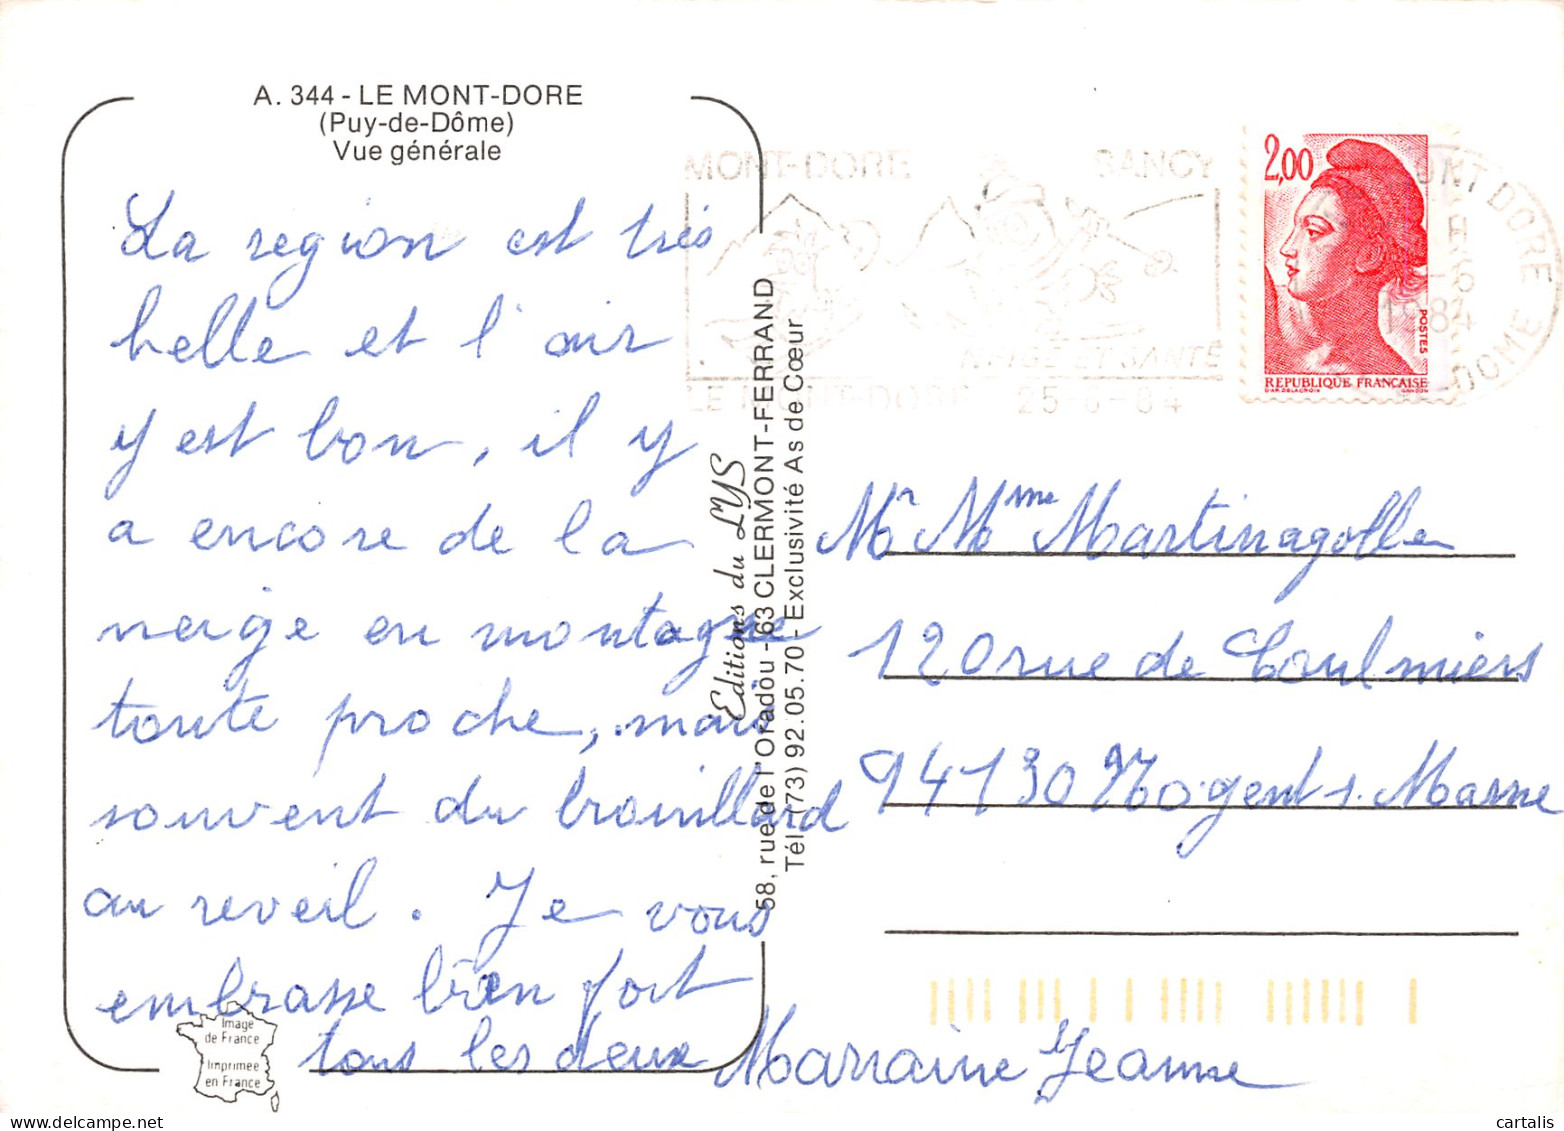 A. 344 - LE MONT-DORE
(Puy-de-Dôme)
Vue générale
La region est très
belle et l'air
y est bon, il y
a encore de la
neige en montagne
toute proche, mais
souvent du brouillard
au reveil. Je vous
embrasse bien fort
tous les deux Marraine Jeanne
Image
de France
Imprimée
en France
Editions du LYS
58, rue de l'Oradou - 63 CLERMONT-FERRAND
Tél. (73) 92.05.70 - Exclusivité As de Cœur
MONT-DORE SANCY
NEIGE ET SANTE
LE MONT-DORE 25-6-84
2,00
POSTES
REPUBLIQUE FRANÇAISE
D'AP. DELACROIX GANDON
MONT DORE
1984
DOME
Mr Mme Martinagolle
120 rue de Coulmiers
94130 Nogent s. Marne
cartalis